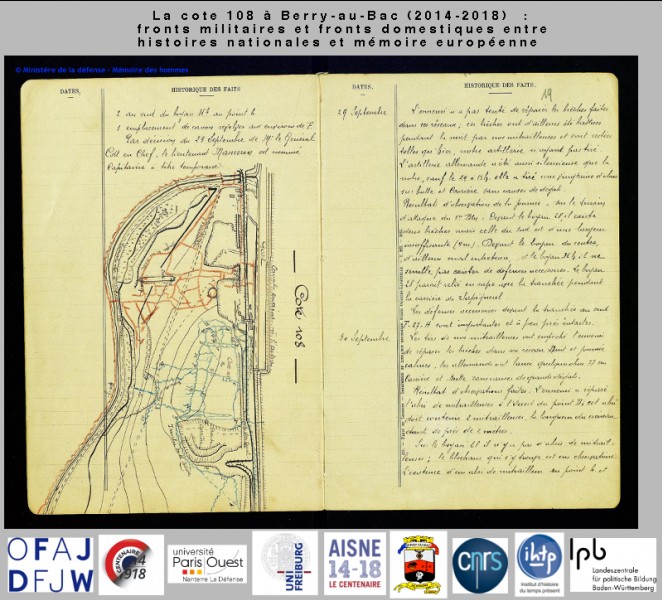 La cote 108 à Berry-au-Bac (2014-2018) :
fronts militaires et fronts domestiques entre
histoires nationales et mémoire européenne
© Ministère de la défense - Mémoire des hommes
DATES. HISTORIQUE DES FAITS
2 au sud du boyau au point
1 emplacement de canon
Par décision du 28 Septembre de Mr le Général
Cdt en Chef, le lieutenant est nommé
Capitaine à titre temporaire
Cote 108
DATES. HISTORIQUE DES FAITS.
19
29 Septembre
L'ennemi n'a pas tenté de réparer les brèches faites
dans ses réseaux ; ces brèches ont d'ailleurs été battues
pendant la nuit par nos mitrailleuses et sont restées
telles que hier, notre artillerie n'ayant pas tiré.
L'artillerie allemande a été aussi silencieuse que la
nôtre, sauf le elle a tiré une vingtaine d'obus
sur butte et Carrière sans causer de dégât.
Résultat d'observations de la journée - sur le terrain
d'attaque du Devant le boyau il existe
deux brèches mais celle du sud est d'une largeur
insuffisante (4m). Devant le boyau du centre,
d'ailleurs mal entretenu, et le boyau il ne
semble pas exister de défenses accessoires. Le boyau
la carrière de
Les défenses accessoires devant la tranchée au sud
sont importantes et à peu près intactes.
30 Septembre
Les tirs de nos mitrailleuses ont empêché l'ennemi
de réparer les brèches dans son réseau. Nuit et journée
calmes. les allemands ont lancé quelques obus sur
Carrière et butte sans causer de grands dégâts.
Résultat d'observations faites. L'ennemi a réparé
l'abri de mitrailleuses à l'Ouest du point cet abri
doit contenir 2 mitrailleuses, la longueur du créneau
étant de près de 2 mètres.
Sur le boyau il n'y a pas d'abri de mitrail-
leuses ; le blockhaus qui s'y trouve est un observatoire
L'existence d'un abri de mitrailleuses au point et
OFAJ
DFJW
CENTENAIRE
14
1918
université
Paris Ouest
Nanterre La Défense
UNI
FREIBURG
AISNE
14-18
LE CENTENAIRE
cnrs
ihtp
Institut d'histoire
du temps présent
lpb
Landeszentrale
für politische Bildung
Baden-Württemberg